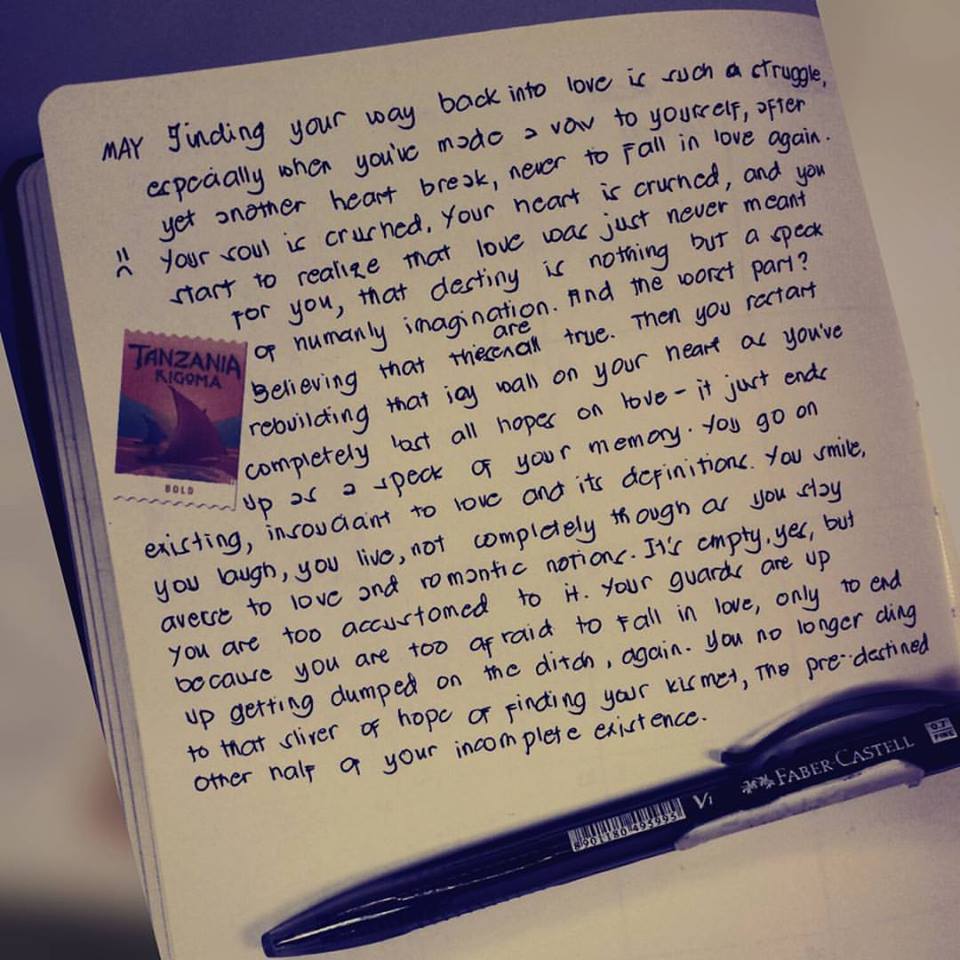 MAY Finding your way back into love is such a struggle,
especially when you've made a vow to yourself, after
yet another heart break, never to fall in love again.
Your soul is crushed. Your heart is crushed, and you
start to realize that love was just never meant
for you, that destiny is nothing but a speck
of humanly imagination. And the worst part?
are
Believing that these all true. Then you restart
rebuilding that icy wall on your heart as you've
completely lost all hopes on love - it just ends
up as a speck of your memory. You go on
existing, insouciant to love and its definitions. You smile,
you laugh, you live, not completely though as you stay
averse to love and romantic notions. It's empty, yes, but
you are too accustomed to it. Your guards are up
because you are too afraid to fall in love, only to end
up getting dumped on the ditch, again. You no longer cling
to that sliver of hope of finding your kismet, the pre-destined
other half of your incomplete existence.
TANZANIA
KIGOMA
BOLD
FABER CASTELL
V1
0.7
FINE
8901180 495995